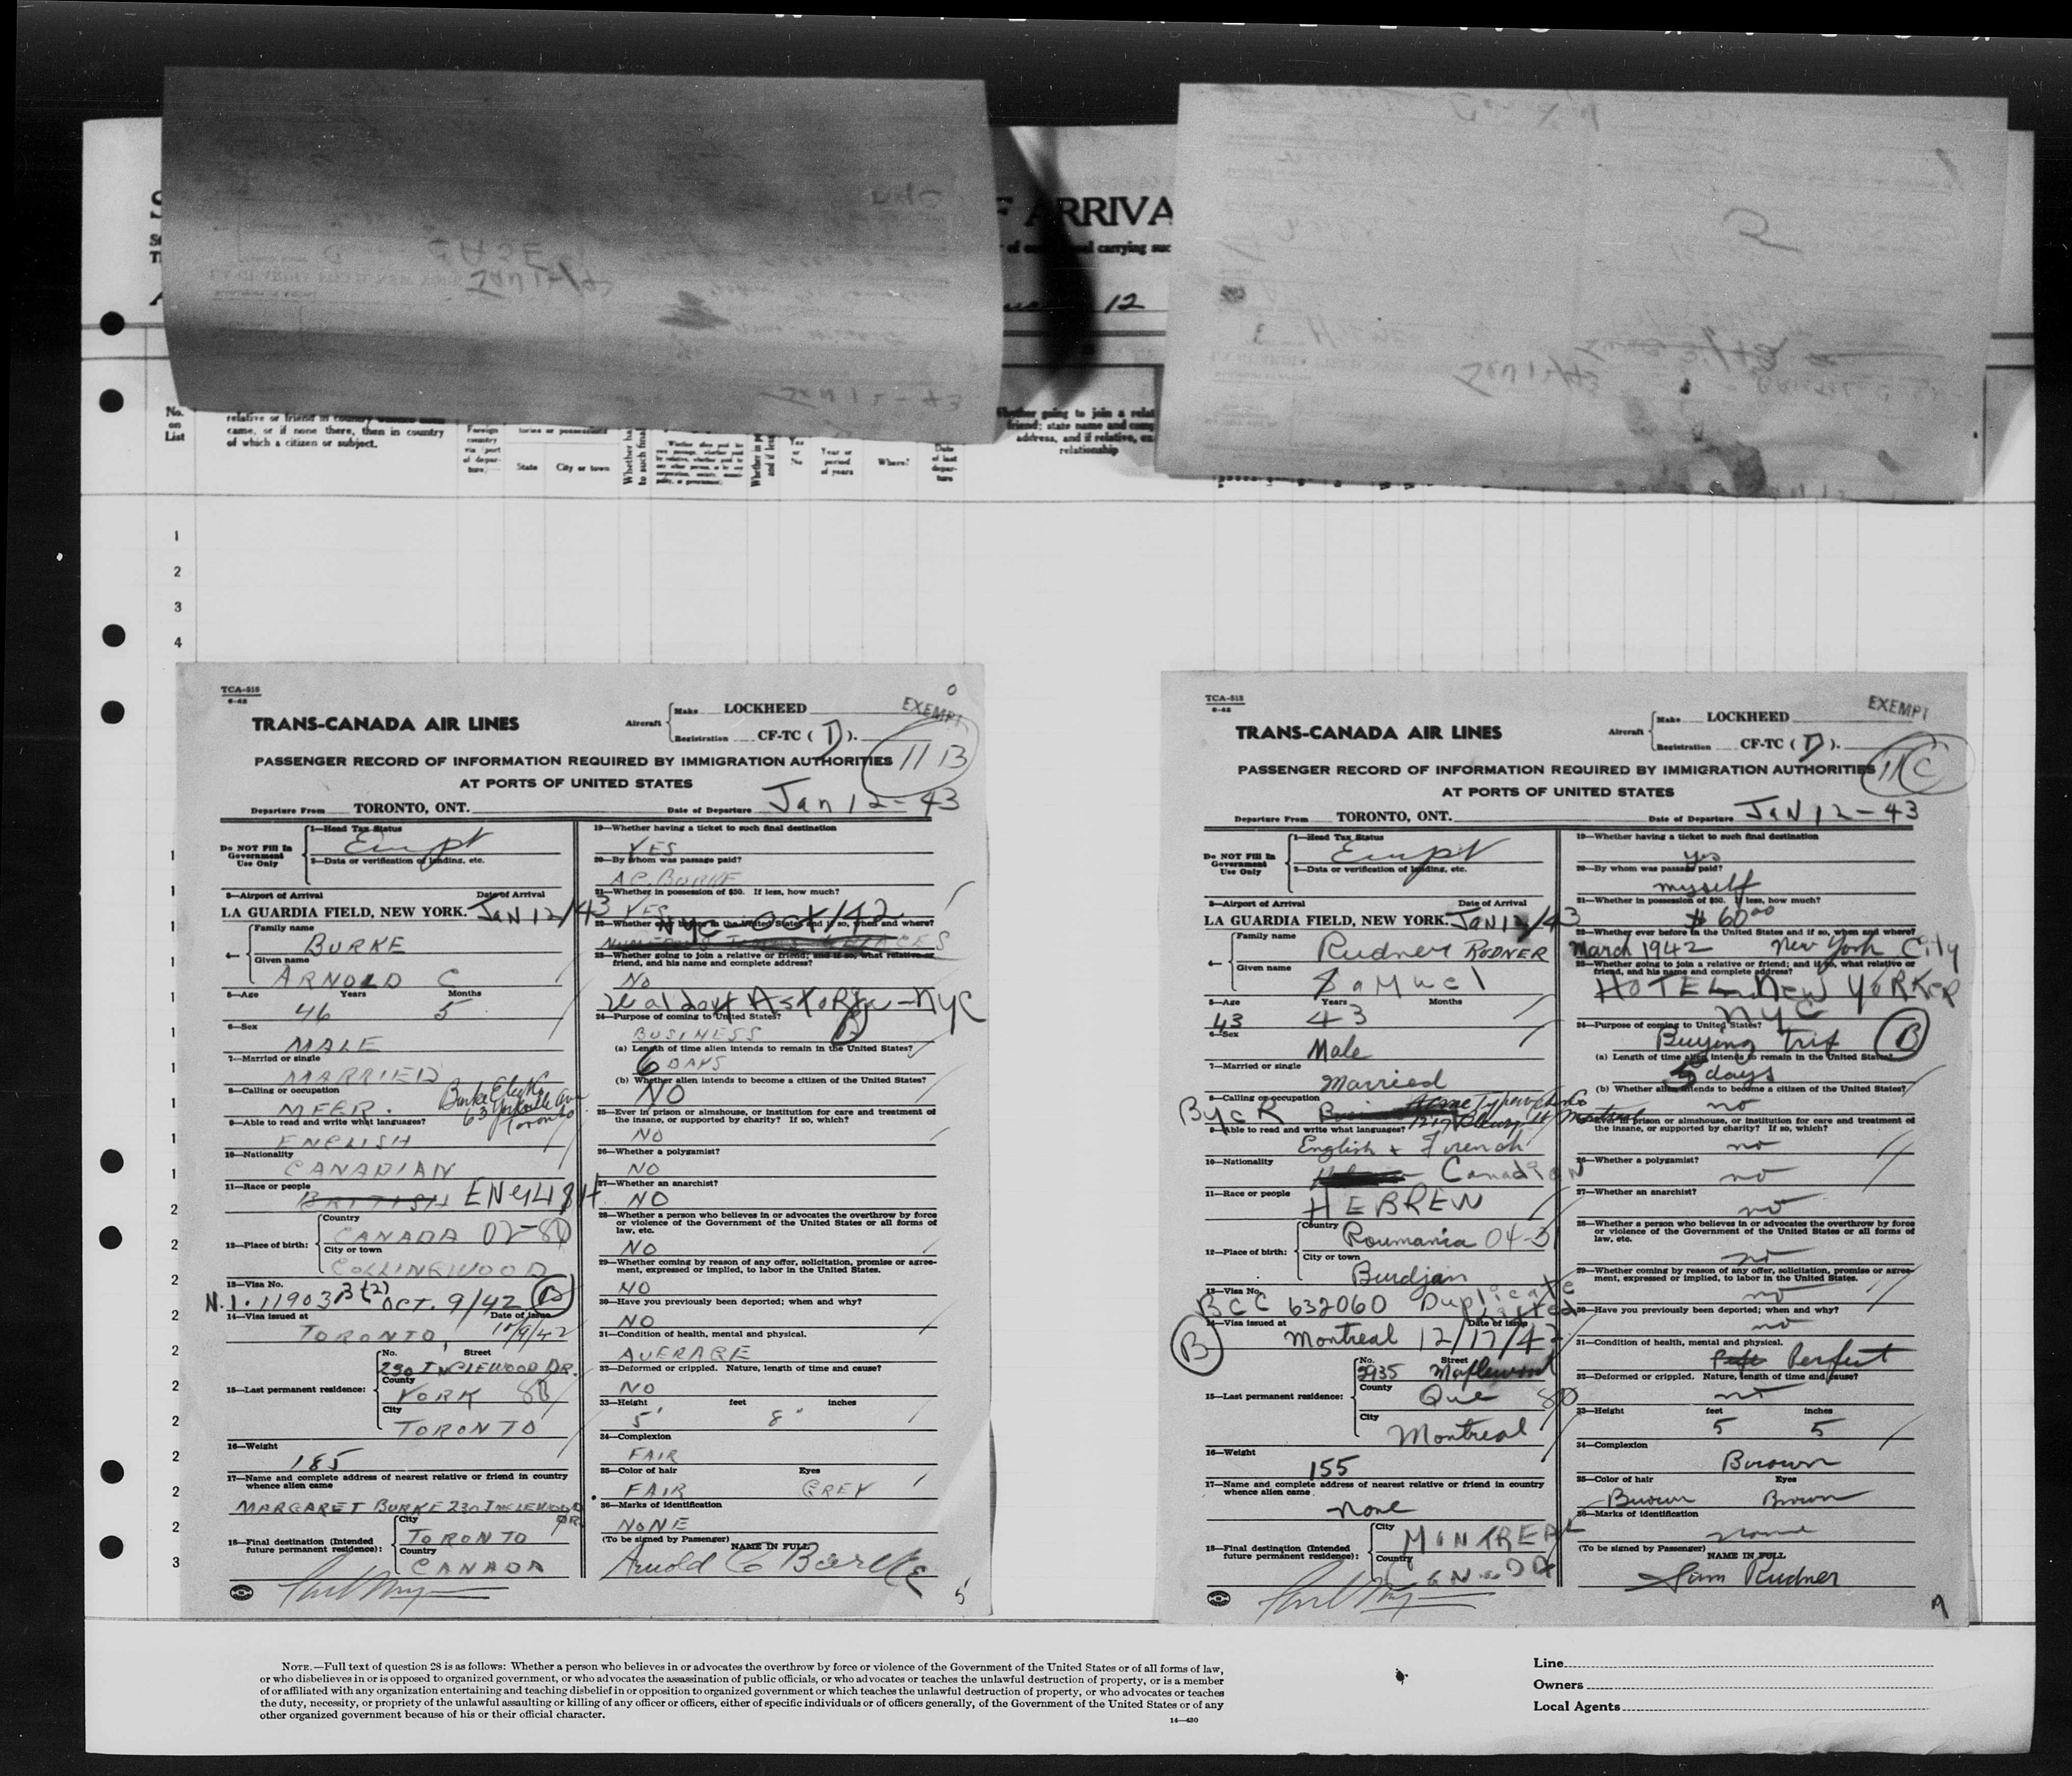 ARRIVA
12
No.
on
List
came, or if none there, then in country
of which a citizen or subject.
Foreign
country
via (port
of depar-
ture)
State
City or town
Yes
or
No
Year or
period
of years
Where?
Date
of last
depar-
ture
Whether going to join a relat
friend; state name and comp
address, and if relative, ex
relationship
1
2
3
4
TCA-515
6-42
TRANS-CANADA AIR LINES
Aircraft
Make LOCKHEED
Registration CF-TC ( D ).
EXEMPT
11 B
PASSENGER RECORD OF INFORMATION REQUIRED BY IMMIGRATION AUTHORITIES
AT PORTS OF UNITED STATES
Departure From TORONTO, ONT. Date of Departure Jan 12-43
Do NOT Fill In
Government
Use Only
1—Head Tax Status
2—Data or verification of landing, etc.
3—Airport of Arrival Date of Arrival
LA GUARDIA FIELD, NEW YORK. JAN 12/43
4— Family name
BURKE
Given name
ARNOLD C
5—Age Years Months
46 5
6—Sex
MALE
7—Married or single
MARRIED
8—Calling or occupation
MFER.
Toronto
9—Able to read and write what languages?
ENGLISH
10—Nationality
CANADIAN
11—Race or people
BRITISH ENGLISH
12—Place of birth:
Country
CANADA 02-80
City or town
COLLINGWOOD
13—Visa No.
N.I. 11903 3(2) OCT. 9/42 B
14—Visa issued at Date of issue
TORONTO, 10/9/42
15—Last permanent residence:
No. Street
230 INGLEWOOD DR.
County
YORK 80
City
TORONTO
16—Weight
185
17—Name and complete address of nearest relative or friend in country
whence alien came
MARGARET BURKE 230 INGLEWOOD
DR.
18—Final destination (Intended
future permanent residence):
City
TORONTO
Country
CANADA
19—Whether having a ticket to such final destination
YES
20—By whom was passage paid?
A.C. BURKE
21—Whether in possession of $50. If less, how much?
YES
NYC Oct/42
22—Whether ever before in the United States and if so, when and where?
23—Whether going to join a relative or friend; and if so, what relative or
friend, and his name and complete address?
NO
Waldorf Astoria - NYC
24—Purpose of coming to United States?
BUSINESS B
(a) Length of time alien intends to remain in the United States?
6 DAYS
(b) Whether alien intends to become a citizen of the United States?
NO
25—Ever in prison or almshouse, or institution for care and treatment of
the insane, or supported by charity? If so, which?
NO
26—Whether a polygamist?
NO
27—Whether an anarchist?
NO
28—Whether a person who believes in or advocates the overthrow by force
or violence of the Government of the United States or all forms of
law, etc.
NO
29—Whether coming by reason of any offer, solicitation, promise or agree-
ment, expressed or implied, to labor in the United States.
NO
30—Have you previously been deported; when and why?
NO
31—Condition of health, mental and physical.
AVERAGE
32—Deformed or crippled. Nature, length of time and cause?
NO
33—Height feet inches
5' 8"
34—Complexion
FAIR
35—Color of hair Eyes
FAIR GREY
36—Marks of identification
NONE
(To be signed by Passenger) NAME IN FULL
Arnold C Burke
5
TCA-515
6-42
TRANS-CANADA AIR LINES
Aircraft
Make LOCKHEED
Registration CF-TC ( D ).
EXEMPT
11 C
PASSENGER RECORD OF INFORMATION REQUIRED BY IMMIGRATION AUTHORITIES
AT PORTS OF UNITED STATES
Departure From TORONTO, ONT. Date of Departure JAN 12-43
Do NOT Fill In
Government
Use Only
1—Head Tax Status
2—Data or verification of landing, etc.
3—Airport of Arrival Date of Arrival
LA GUARDIA FIELD, NEW YORK. JAN 12/43
4— Family name
Rudner RUDNER
Given name
Samuel
5—Age Years Months
43 43
6—Sex
Male
7—Married or single
Married
8—Calling or occupation
Buyer
9—Able to read and write what languages?
English + French
10—Nationality
Canadian
11—Race or people
HEBREW
12—Place of birth:
Country
Roumania 04-3
City or town
Burdjan
13—Visa No.
BCC 632060 Duplicate
14—Visa issued at Date of issue
B Montreal 12/17/42
15—Last permanent residence:
No. Street
2935 Maplewood
County
Que 80
City
Montreal
16—Weight
155
17—Name and complete address of nearest relative or friend in country
whence alien came
None
18—Final destination (Intended
future permanent residence):
City
MONTREAL
Country
19—Whether having a ticket to such final destination
yes
20—By whom was passage paid?
myself
21—Whether in possession of $50. If less, how much?
$ 60 00
22—Whether ever before in the United States and if so, when and where?
March 1942 New York City
23—Whether going to join a relative or friend; and if so, what relative or
friend, and his name and complete address?
HOTEL NEW YORKER
NYC
24—Purpose of coming to United States?
Buying trip B
(a) Length of time alien intends to remain in the United States?
5 days
(b) Whether alien intends to become a citizen of the United States?
no
25—Ever in prison or almshouse, or institution for care and treatment of
the insane, or supported by charity? If so, which?
no
26—Whether a polygamist?
no
27—Whether an anarchist?
no
28—Whether a person who believes in or advocates the overthrow by force
or violence of the Government of the United States or all forms of
law, etc.
no
29—Whether coming by reason of any offer, solicitation, promise or agree-
ment, expressed or implied, to labor in the United States.
no
30—Have you previously been deported; when and why?
no
31—Condition of health, mental and physical.
Perfect
32—Deformed or crippled. Nature, length of time and cause?
no
33—Height feet inches
5 5
34—Complexion
Brown
35—Color of hair Eyes
Brown Brown
36—Marks of identification
none
(To be signed by Passenger)
NAME IN FULL
Sam Rudner
NOTE.—Full text of question 28 is as follows: Whether a person who believes in or advocates the overthrow by force or violence of the Government of the United States or of all forms of law,
or who disbelieves in or is opposed to organized government, or who advocates the assassination of public officials, or who advocates or teaches the unlawful destruction of property, or is a member
of or affiliated with any organization entertaining and teaching disbelief in or opposition to organized government or which teaches the unlawful destruction of property, or who advocates or teaches
the duty, necessity, or propriety of the unlawful assaulting or killing of any officer or officers, either of specific individuals or of officers generally, of the Government of the United States or of any
other organized government because of his or their official character.
14—430
Line
Owners
Local Agents